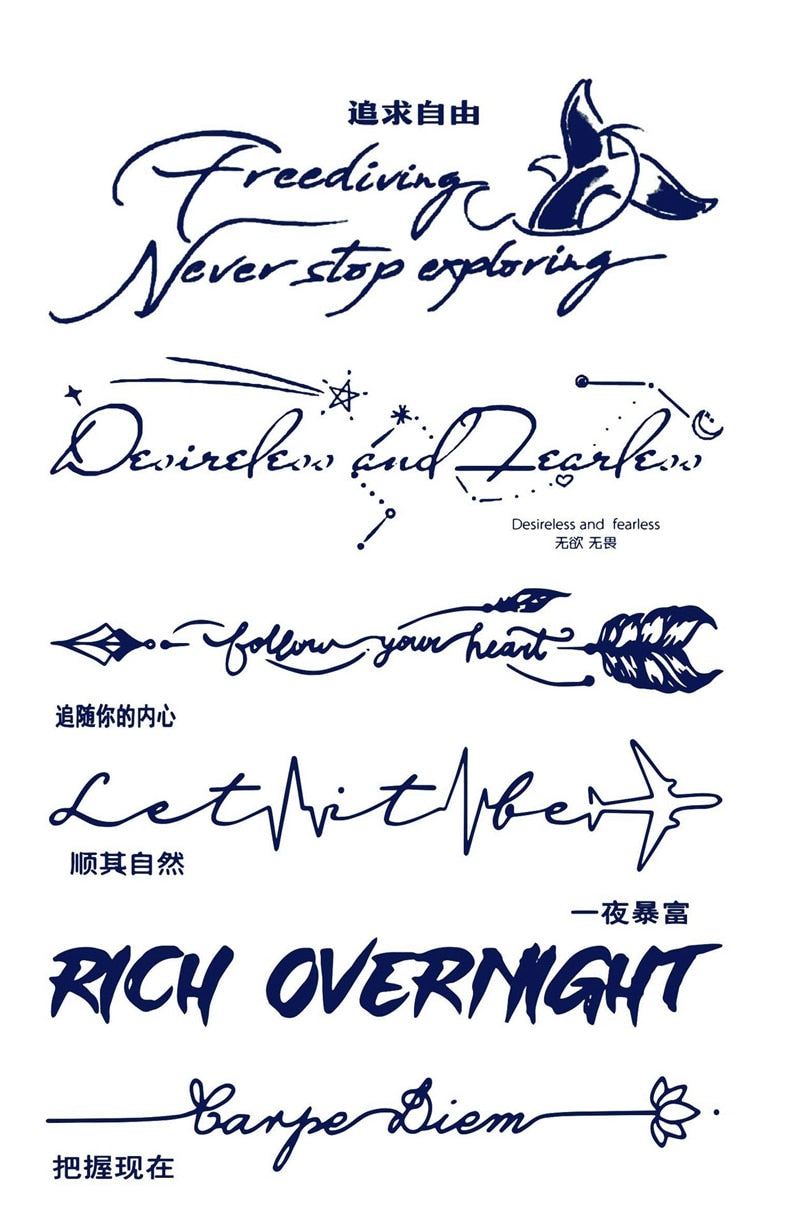 追求自由
Freediving
Never stop exploring
Desireless and Fearless
Desireless and fearless
无欲 无畏
follow your heart
追随你的内心
Let it be
顺其自然
一夜暴富
RICH OVERNIGHT
Carpe Diem
把握现在